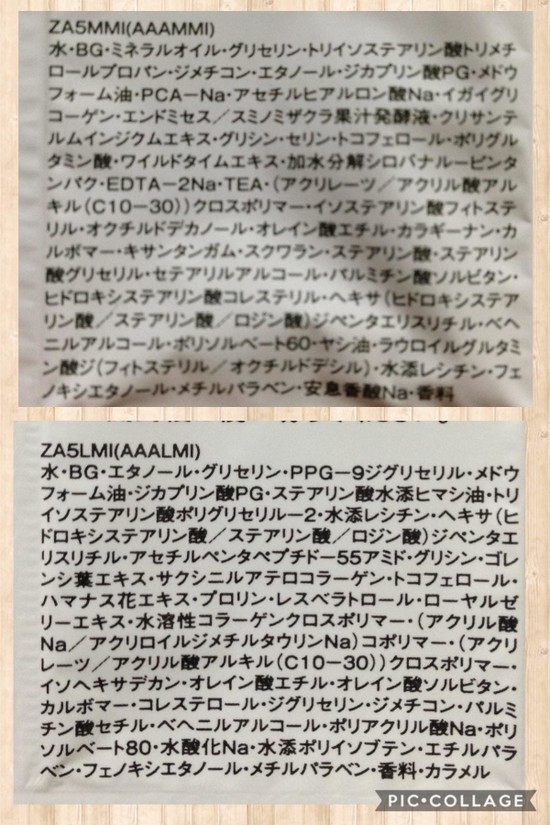 ZA5MMI(AAAMMI)
水・BG・ミネラルオイル・グリセリン・トリイソステアリン酸トリメチ
ロールプロパン・ジメチコン・エタノール・ジカプリン酸PG・メドウ
フォーム油・PCA－Na・アセチルヒアルロン酸Na・イガイグリ
コーゲン・エンドミセス／スミノミザクラ果汁発酵液・クリサンテ
ルムインジクムエキス・グリシン・セリン・トコフェロール・ポリグル
タミン酸・ワイルドタイムエキス・加水分解シロバナルーピンタ
ンパク・EDTA－2Na・TEA・（アクリレーツ／アクリル酸アル
キル（C10－30））クロスポリマー・イソステアリン酸フィトステ
リル・オクチルドデカノール・オレイン酸エチル・カラギーナン・カ
ルボマー・キサンタンガム・スクワラン・ステアリン酸・ステアリン
酸グリセリル・セテアリルアルコール・パルミチン酸ソルビタン・
ヒドロキシステアリン酸コレステリル・ヘキサ（ヒドロキシステア
リン酸／ステアリン酸／ロジン酸）ジペンタエリスリチル・ベヘ
ニルアルコール・ポリソルベート60・ヤシ油・ラウロイルグルタミ
ン酸ジ（フィトステリル／オクチルドデシル）・水添レシチン・フェ
ノキシエタノール・メチルパラベン・安息香酸Na・香料
ZA5LMI(AAALMI)
水・BG・エタノール・グリセリン・PPG－9ジグリセリル・メドウ
フォーム油・ジカプリン酸PG・ステアリン酸水添ヒマシ油・トリ
イソステアリン酸ポリグリセリル－2・水添レシチン・ヘキサ（ヒ
ドロキシステアリン酸／ステアリン酸／ロジン酸）ジペンタエ
リスリチル・アセチルペンタペプチド－55アミド・グリシン・ゴレ
ンシ葉エキス・サクシニルアテロコラーゲン・トコフェロール・
ハマナス花エキス・プロリン・レスベラトロール・ローヤルゼ
リーエキス・水溶性コラーゲンクロスポリマー・（アクリル酸
Na／アクリロイルジメチルタウリンNa）コポリマー・（アクリ
レーツ／アクリル酸アルキル（C10－30））クロスポリマー・
イソヘキサデカン・オレイン酸エチル・オレイン酸ソルビタン・
カルボマー・コレステロール・ジグリセリン・ジメチコン・パルミ
チン酸セチル・ベヘニルアルコール・ポリアクリル酸Na・ポリ
ソルベート80・水酸化Na・水添ポリイソブテン・エチルパラ
ベン・フェノキシエタノール・メチルパラベン・香料・カラメル
PIC・COLLAGE